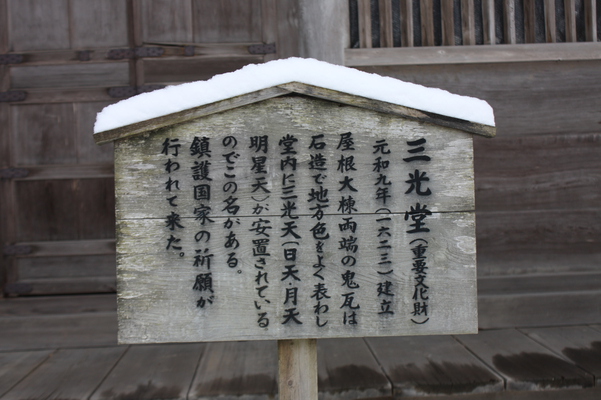 三光堂(重要文化財)
元和九年(一六二三)建立
屋根大棟両端の鬼瓦は
石造で地方色をよく表わし
堂内に三光天(日天・月天
明星天)が安置されている
のでこの名がある。
鎮護国家の祈願が
行われて来た。